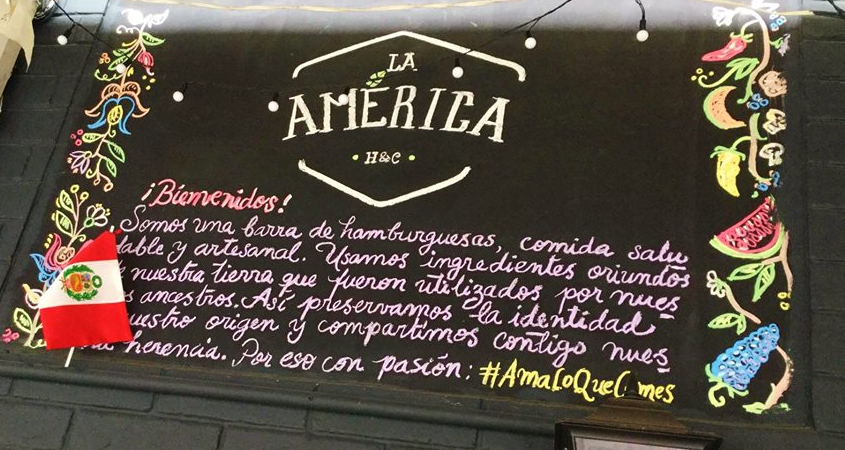 LA
AMÉRICA
H&C
¡Bienvenidos!
Somos una barra de hamburguesas, comida salu
dable y artesanal. Usamos ingredientes oriundos
nuestra tierra que fueron utilizados por nues
ancestros. Así preservamos la identidad
nuestro origen y compartimos contigo nues
herencia. Por eso con pasión: #AmaLoQueComes